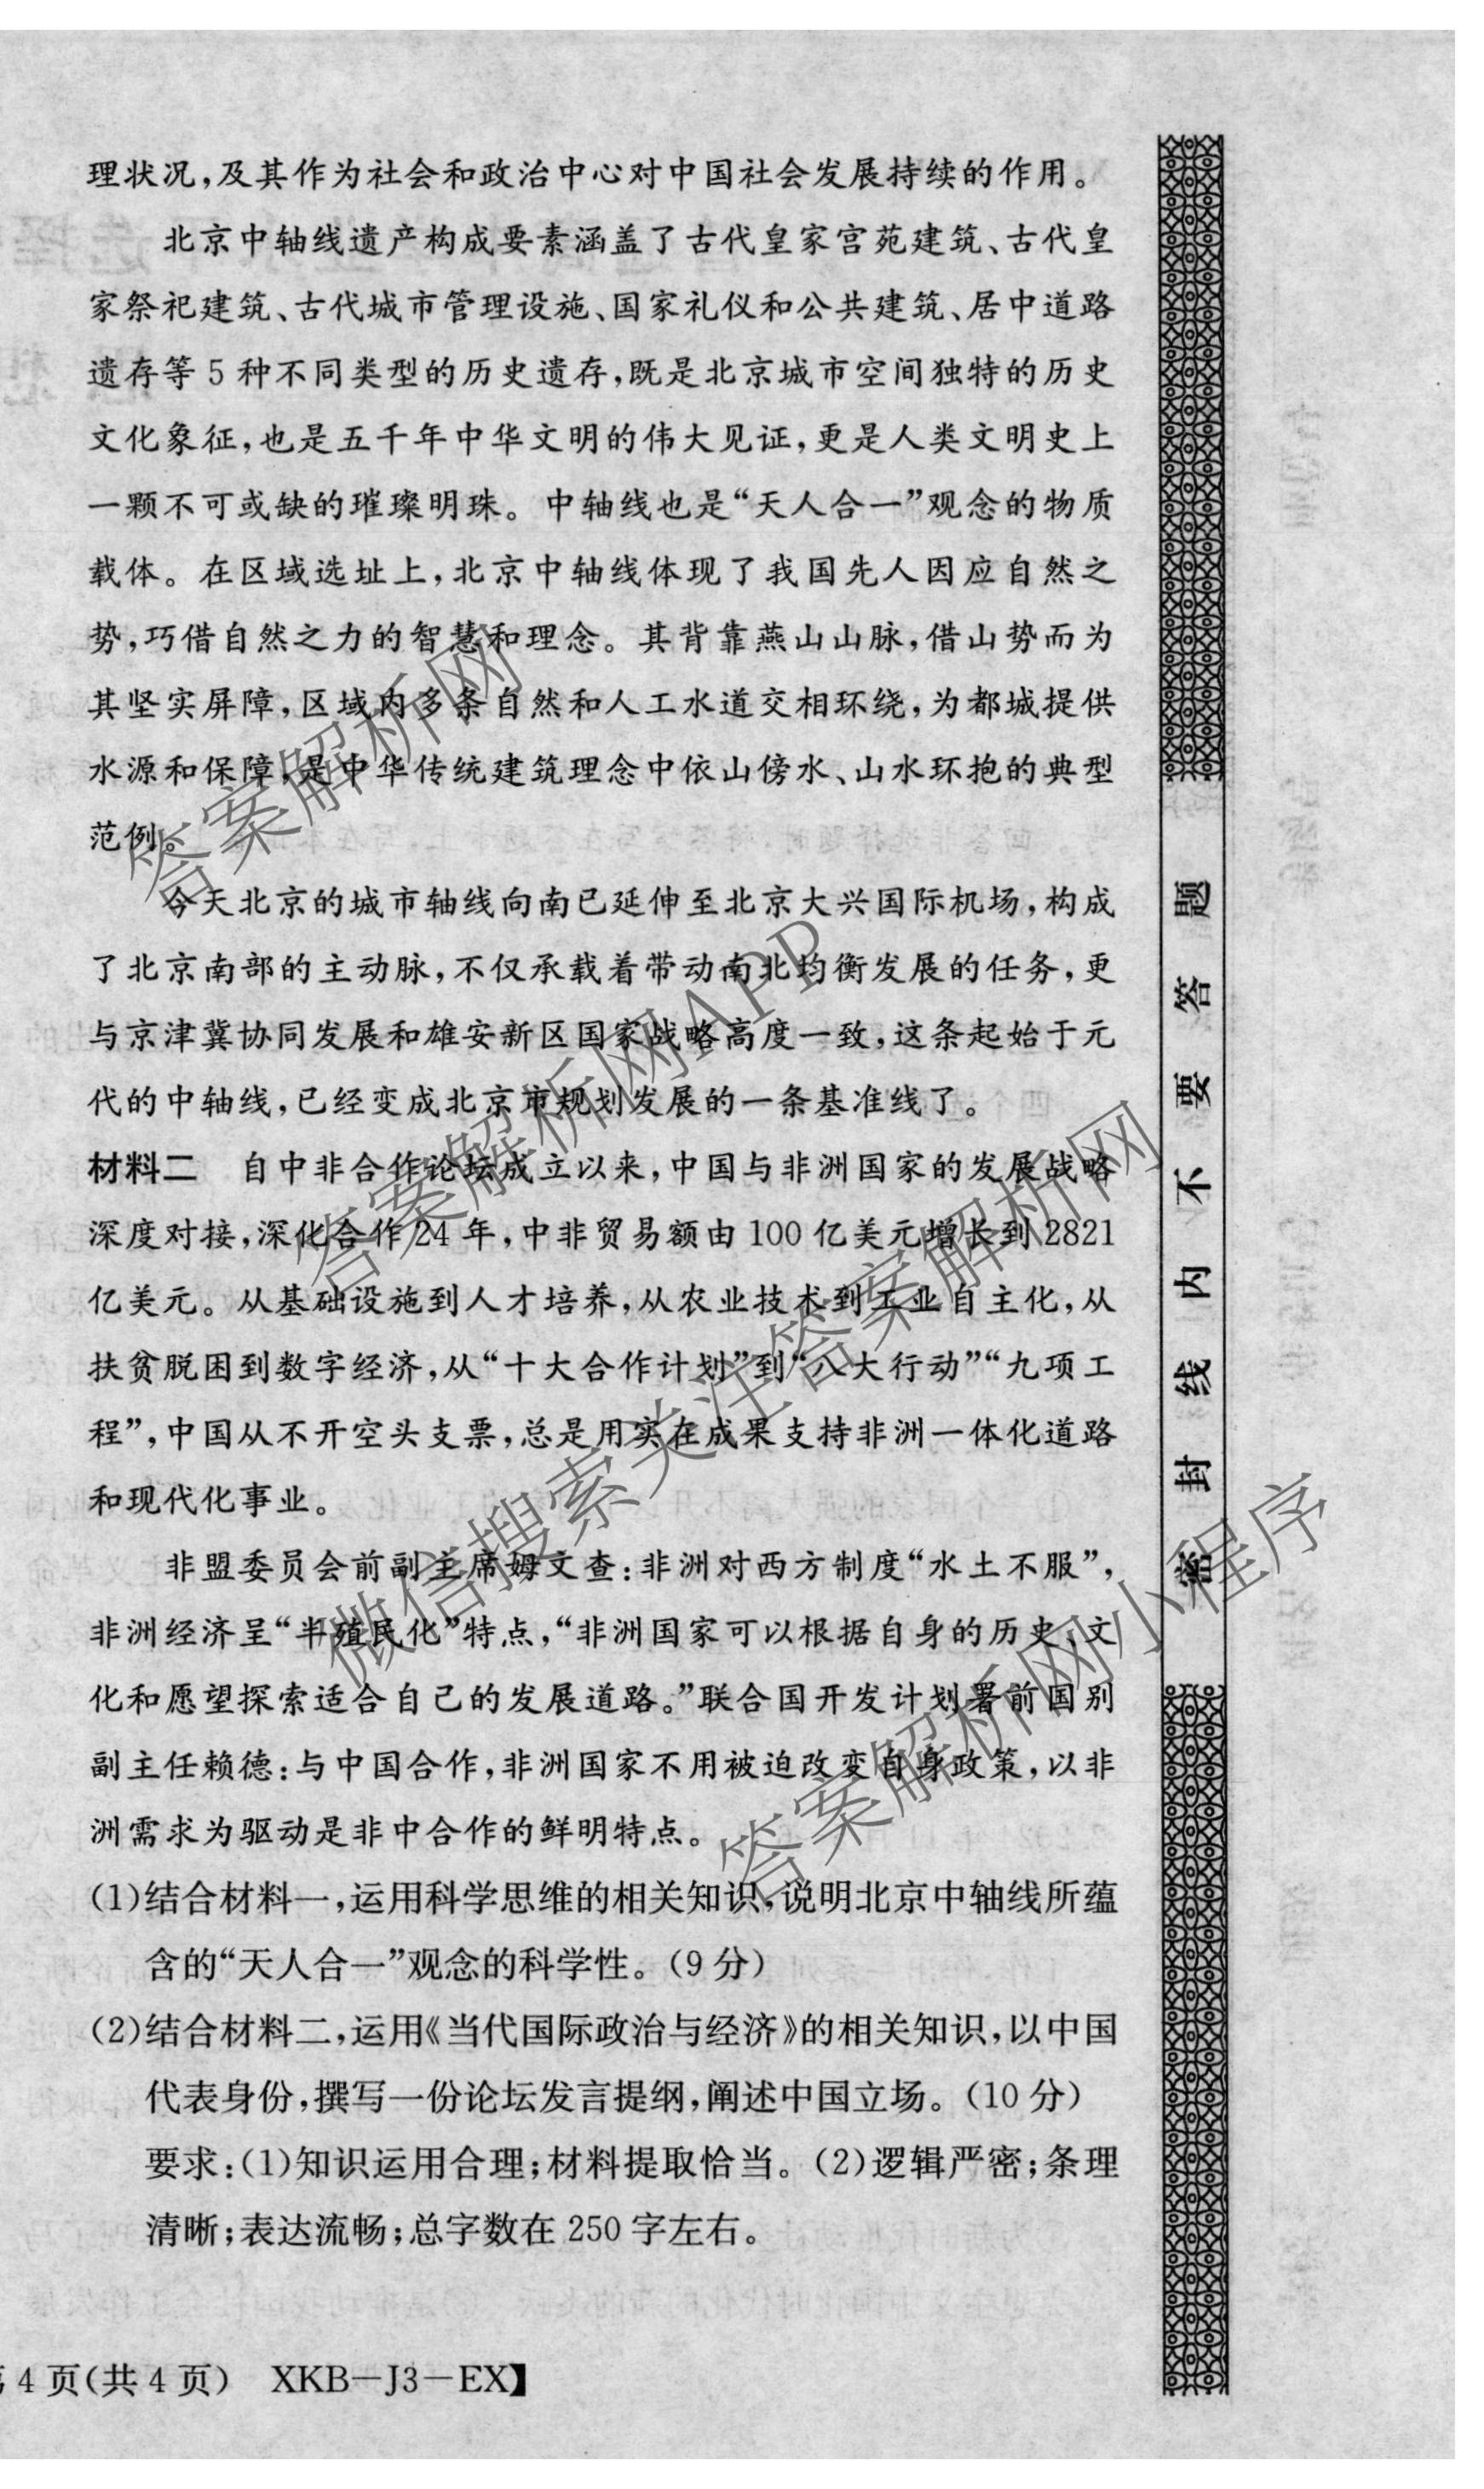 理状况,及其作为社会和政治中心对中国社会发展持续的作用。
北京中轴线遗产构成要素涵盖了古代皇家宫苑建筑、古代皇
家祭祀建筑、古代城市管理设施、国家礼仪和公共建筑、居中道路
遗存等5种不同类型的历史遗存,既是北京城市空间独特的历史
文化象征,也是五千年中华文明的伟大见证,更是人类文明史上
一颗不可或缺的璀璨明珠。中轴线也是“天人合一”观念的物质
载体。在区域选址上,北京中轴线体现了我国先人因应自然之
势,巧借自然之力的智慧和理念。其背靠燕山山脉,借山势而为
其坚实屏障,区域内多条自然和人工水道交相环绕,为都城提供
水源和保障,是中华传统建筑理念中依山傍水、山水环抱的典型
范例。
今天北京的城市轴线向南已延伸至北京大兴国际机场,构成
了北京南部的主动脉,不仅承载着带动南北均衡发展的任务,更
与京津冀协同发展和雄安新区国家战略高度一致,这条起始于元
代的中轴线,已经变成北京市规划发展的一条基准线了。
材料二 自中非合作论坛成立以来,中国与非洲国家的发展战略
深度对接,深化合作24年,中非贸易额由100亿美元增长到2821
亿美元。从基础设施到人才培养,从农业技术到工业自主化,从
扶贫脱困到数字经济,从“十大合作计划”到“八大行动”“九项工
程”,中国从不开空头支票,总是用实在成果支持非洲一体化道路
和现代化事业。
非盟委员会前副主席姆文查:非洲对西方制度“水土不服”,
非洲经济呈“半殖民化”特点,“非洲国家可以根据自身的历史、文
化和愿望探索适合自己的发展道路。”联合国开发计划署前国别
副主任赖德:与中国合作,非洲国家不用被迫改变自身政策,以非
洲需求为驱动是非中合作的鲜明特点。
(1)结合材料一,运用科学思维的相关知识,说明北京中轴线所蕴
含的“天人合一”观念的科学性。(9分)
(2)结合材料二,运用《当代国际政治与经济》的相关知识,以中国
代表身份,撰写一份论坛发言提纲,阐述中国立场。(10分)
要求:(1)知识运用合理;材料提取恰当。(2)逻辑严密;条理
清晰;表达流畅;总字数在250字左右。
第4页(共4页) XKB-J3-EX】
密封线内不要答题
答案解析网
答案解析网APP
微信搜索关注答案解析网
答案解析网小程序